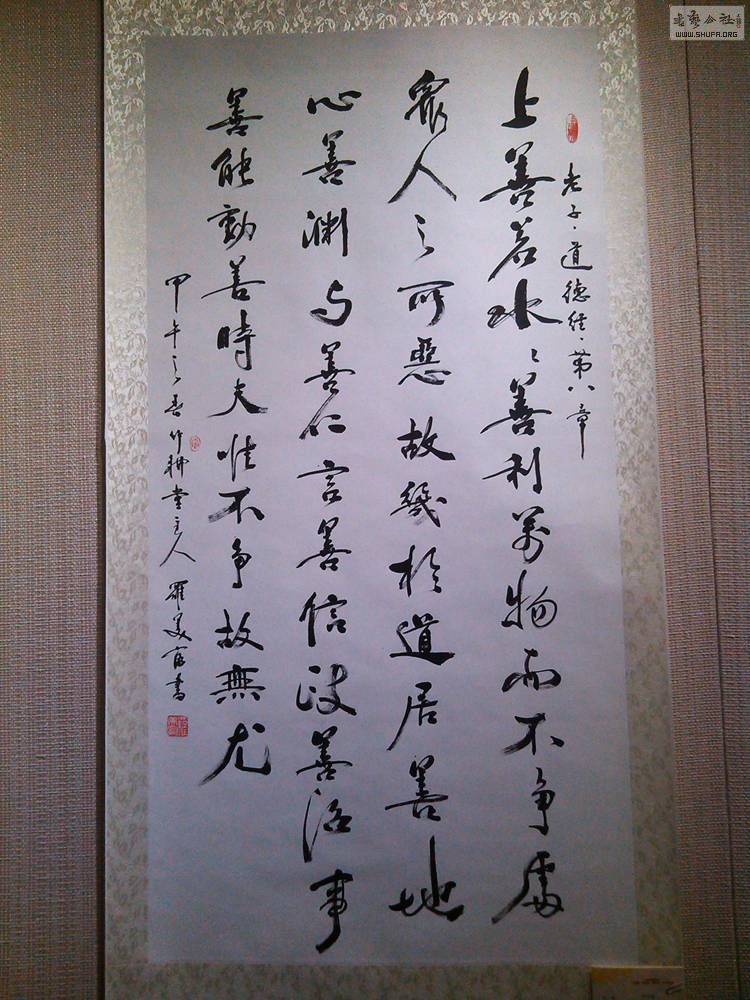 老子·道德经·第八章
上善若水〻善利万物而不争處
眾人之所惡故幾於道居善地
心善渊与善仁言善信政善治事
善能動善時夫惟不争故無尤
甲午之春竹 堂主人 羅美 書
WWW.SHUFA.ORG